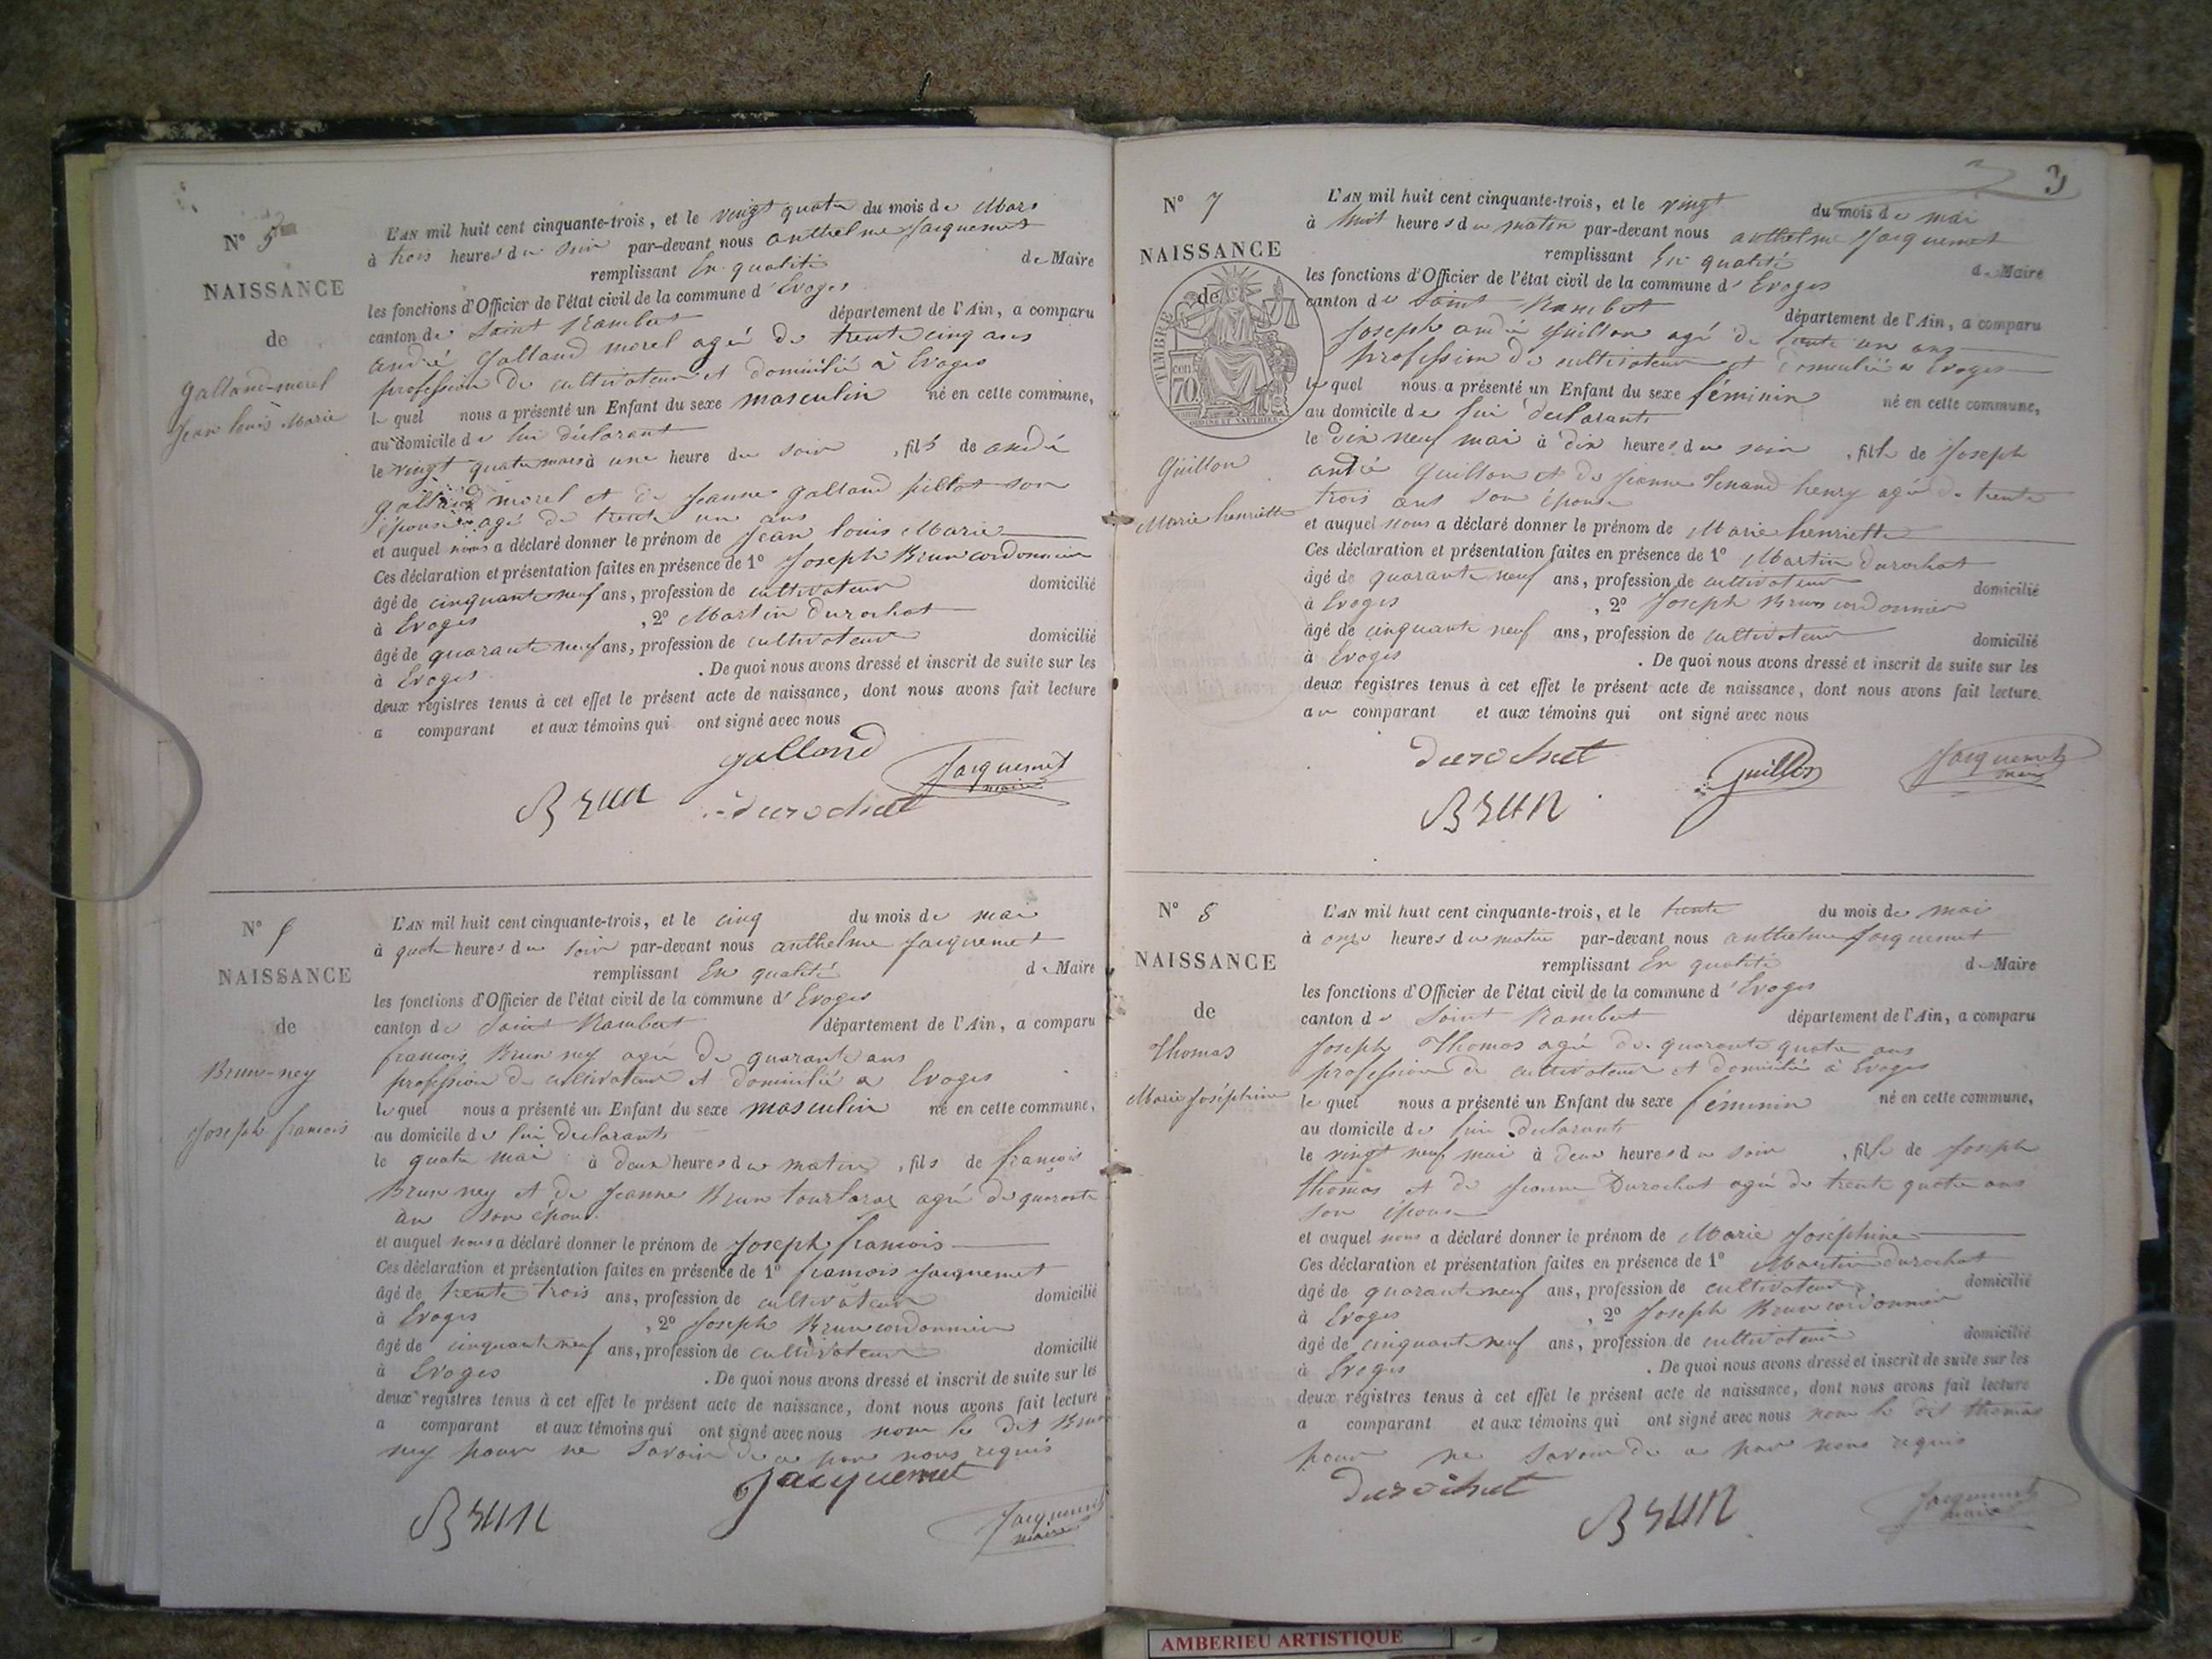 N° 5
NAISSANCE
de
Galland-morel
Jean louis Marie
L'AN mil huit cent cinquante-trois, et le vingt quatre du mois de Mars
à trois heures du soir par-devant nous anthelme Jacquemet
remplissant En qualité de Maire
les fonctions d'Officier de l'état civil de la commune d'Evoges
canton de Saint Rambert département de l'Ain, a comparu
andré Galland morel agé de trente cinq ans
profession de cultivateur et domicilié à Evoges
lequel nous a présenté un Enfant du sexe masculin né en cette commune,
au domicile de lui déclarant
le vingt quatre mars à une heure du soir, fils de andré
galland morel et de Jeanne Galland pillot son
épouse agé de trente un ans
et auquel nous a déclaré donner le prénom de Jean louis Marie
Ces déclaration et présentation faites en présence de 1° Joseph Brun cordonnier
âgé de cinquante neuf ans, profession de cultivateur domicilié
à Evoges, 2° Martin Durochat
âgé de quarante neuf ans, profession de cultivateur domicilié
à Evoges. De quoi nous avons dressé et inscrit de suite sur les
deux registres tenus à cet effet le présent acte de naissance, dont nous avons fait lecture
a comparant et aux témoins qui ont signé avec nous
galland
Jacquemet
maire
BRUN
durochat
N°
NAISSANCE
de
Brun-ney
Joseph francois
L'AN mil huit cent cinquante-trois, et le cinq du mois de mai
à quatre heures du soir par-devant nous anthelme Jacquemet
remplissant En qualité de Maire
les fonctions d'Officier de l'état civil de la commune d'Evoges
canton de Saint Rambert département de l'Ain, a comparu
francois Brun ney agé de quarante ans
profession de cultivateur et domicilié a Evoges
lequel nous a présenté un Enfant du sexe masculin né en cette commune,
au domicile de lui declarant
le quatre mai à deux heures du matin, fils de françois
Brun ney et de Jeanne Brun agé de quarante
an son épouse
et auquel nous a déclaré donner le prénom de Joseph francois
Ces déclaration et présentation faites en présence de 1° françois Jacquemet
âgé de trente trois ans, profession de cultivateur domicilié
à Evoges, 2° Joseph Brun cordonnier
âgé de cinquante neuf ans, profession de cultivateur domicilié
à Evoges. De quoi nous avons dressé et inscrit de suite sur les
deux registres tenus à cet effet le présent acte de naissance, dont nous avons fait lecture
a comparant et aux témoins qui ont signé avec nous non le dit Brun
ney pour ne savoir de ce par nous requis
Jacquemet
BRUN
Jacquemet
maire
3
N° 7
NAISSANCE
de
TIMBRE
70
Guillon
Marie henriette
L'AN mil huit cent cinquante-trois, et le vingt du mois de mai
à huit heures du matin par-devant nous anthelme Jacquemet
remplissant En qualité de Maire
les fonctions d'Officier de l'état civil de la commune d'Evoges
canton de Saint Rambert département de l'Ain, a comparu
Joseph andré Guillon agé de trente un ans
profession de cultivateur et domicilié a Evoges
lequel nous a présenté un Enfant du sexe féminin né en cette commune,
au domicile de lui declarant
le dix neuf mai à dix heures du soir, fille de Joseph
andré Guillon et de jeanne henry agé de trente
trois ans son épouse
et auquel nous a déclaré donner le prénom de Marie henriette
Ces déclaration et présentation faites en présence de 1° Martin Durochat
âgé de quarante neuf ans, profession de cultivateur domicilié
à Evoges, 2° Joseph Brun cordonnier
âgé de cinquante neuf ans, profession de cultivateur domicilié
à Evoges. De quoi nous avons dressé et inscrit de suite sur les
deux registres tenus à cet effet le présent acte de naissance, dont nous avons fait lecture.
au comparant et aux témoins qui ont signé avec nous
durochat
Guillon
Jacquemet
maire
BRUN
N° 8
NAISSANCE
de
Thomas
Marie Joséphine
L'AN mil huit cent cinquante-trois, et le trente du mois de mai
à onze heures du matin par-devant nous anthelme Jacquemet
remplissant En qualité de Maire
les fonctions d'Officier de l'état civil de la commune d'Evoges
canton de Saint Rambert département de l'Ain, a comparu
Joseph Thomas agé de quarante quatre ans
profession de cultivateur et domicilié à Evoges
lequel nous a présenté un Enfant du sexe féminin né en cette commune,
au domicile de lui declarant
le vingt neuf mai à deux heures du soir, fille de Joseph
thomas et de Jeanne Durochat agé de trente quatre ans
son épouse
et auquel nous a déclaré donner le prénom de Marie Joséphine
Ces déclaration et présentation faites en présence de 1° Martin Durochat
âgé de quarante neuf ans, profession de cultivateur domicilié
à Evoges, 2° Joseph Brun cordonnier
âgé de cinquante neuf ans, profession de cultivateur domicilié
à Evoges. De quoi nous avons dressé et inscrit de suite sur les
deux registres tenus à cet effet le présent acte de naissance, dont nous avons fait lecture
a comparant et aux témoins qui ont signé avec nous non le dit thomas
pour ne savoir de ce par nous requis
durochat
BRUN
Jacquemet
maire
AMBERIEU ARTISTIQUE